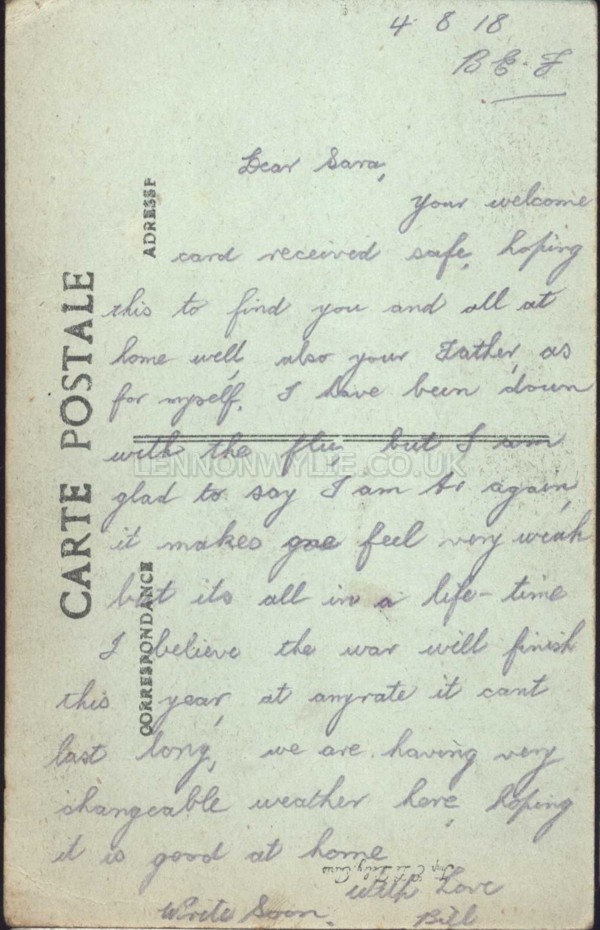 4 8 18
B E. F
Dear Sara,
Your welcome
card received safe, hoping
this to find you and all at
home well, also your Father, as
for myself. I have been down
with the flu but I am
glad to say I am A1 again,
it makes one feel very weak
but its all in a life-time
I believe the war will finish
this year, at anyrate it cant
last long, we are having very
changeable weather here, hoping
it is good at home
With Love
Write Soon. Bill
CARTE POSTALE
ADRESSE
CORRESPONDANCE
LENNONWYLIE.CO.UK